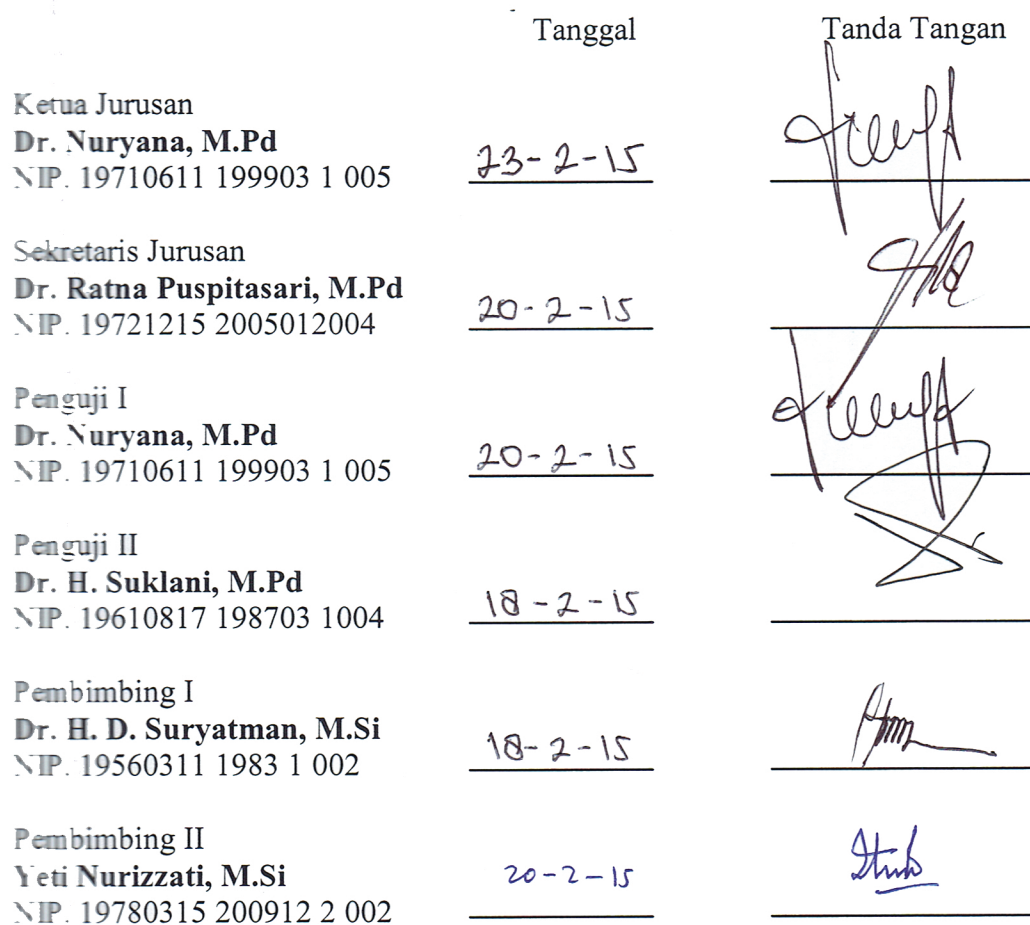 Tanggal Tanda Tangan
Ketua Jurusan
Dr. Nuryana, M.Pd
NIP. 19710611 199903 1 005 23-2-15
Sekretaris Jurusan
Dr. Ratna Puspitasari, M.Pd
NIP. 19721215 2005012004 20-2-15
Penguji I
Dr. Nuryana, M.Pd
NIP. 19710611 199903 1 005 20-2-15
Penguji II
Dr. H. Suklani, M.Pd
NIP. 19610817 198703 1004 18-2-15
Pembimbing I
Dr. H. D. Suryatman, M.Si
NIP. 19560311 1983 1 002 18-2-15
Pembimbing II
Yeti Nurizzati, M.Si 20-2-15
NIP. 19780315 200912 2 002